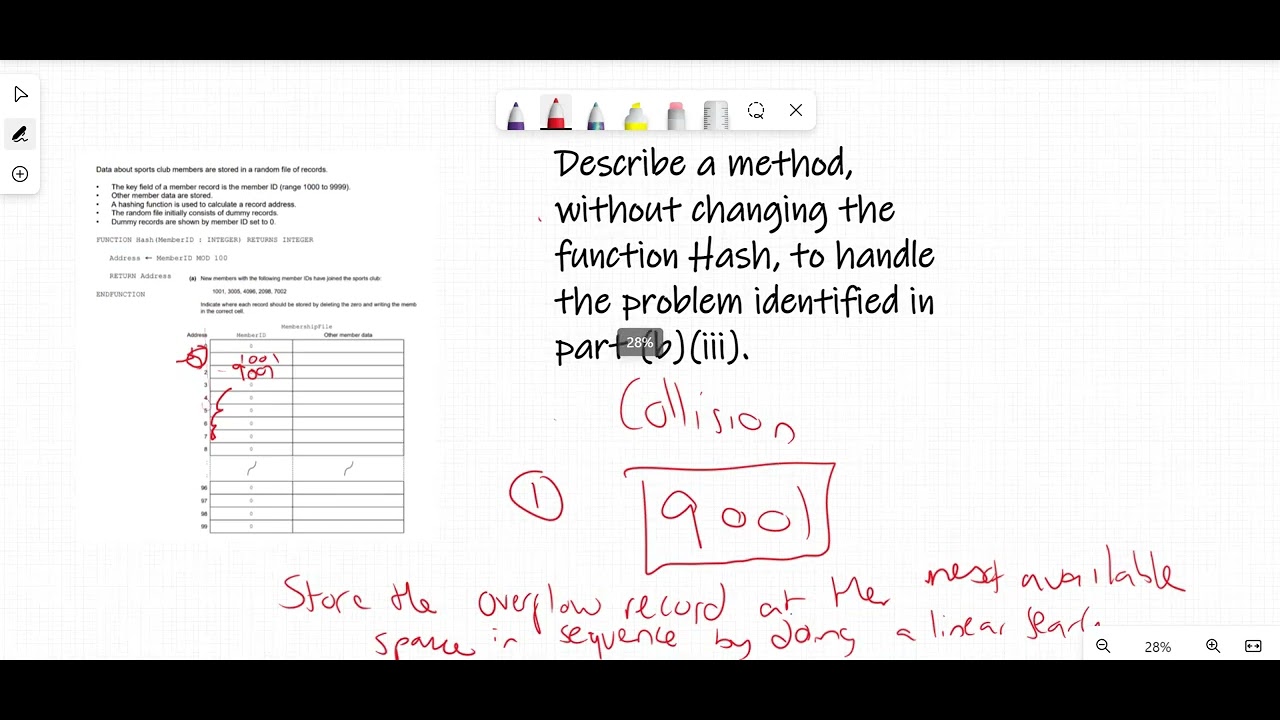 Data about sports club members are stored in a random file of records.
• The key field of a member record is the member ID (range 1000 to 9999).
• Other member data are stored.
• A hashing function is used to calculate a record address.
• The random file initially consists of dummy records.
• Dummy records are shown by member ID set to 0.
FUNCTION Hash(MemberID : INTEGER) RETURNS INTEGER
Address ← MemberID MOD 100
RETURN Address
ENDFUNCTION
(a) New members with the following member IDs have joined the sports club:
1001, 3005, 4096, 2098, 7002
Indicate where each record should be stored by deleting the zero and writing the memb
in the correct cell.
MembershipFile
Address MemberID Other member data
0
1001
2 9001
3 0
4 0
5 0
6 0
7 0
8 0
96 0
97 0
98 0
99 0
Describe a method,
without changing the
function Hash, to handle
the problem identified in
part (b)(iii).
28%
Collision
1 9001
Store the overflow record at the next available
space in sequence by doing a linear
28%